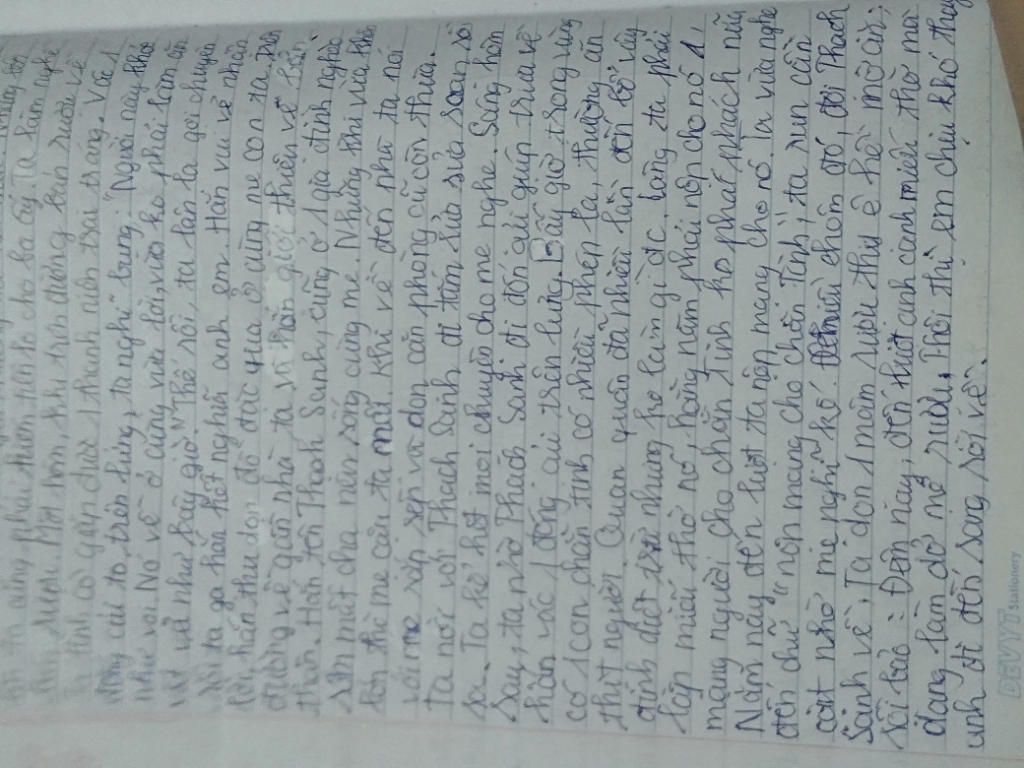 ta cũng phải thôn tiến tơ cho ba ấy. Ta làm nghề
Một hôm, khi trên đường bán rượu về
Ta tình cờ gặp được 1 thanh niên trai tráng. Vác 1
củi to, trên lưng, ta nghĩ bụng: "Người này khỏe
như voi. Nó về ở cùng với tôi, vừa ko phải làm ăn
vất vả như bây giờ". Thế rồi, ta lân la gợi chuyện
Rồi ta gạ hắn kết nghĩa anh em. Hắn vui vẻ nhận
lời, hắn thu dọn đồ đạc qua ở cùng mẹ con ta. Trên
đường về gần nhà ta và hắn giới thiệu về bản
thân. Hắn tên Thạch Sanh, cũng ở 1 gia đình nghèo
sớm mất cha nên sống cùng mẹ. Nhưng khi vừa khôn
lớn thì mẹ của ta mất. Khi về đến nhà ta nói
với mẹ sắp xếp và dọn căn phòng cũ còn thừa.
Ta nói với Thạch Sanh đi tắm rửa sửa soạn rồi
ra. Ta kể hết mọi chuyện cho mẹ nghe. Sáng hôm
sau, ta nhờ Thạch Sanh đi đốn củi giúp trưa về
hắn vác 1 đống củi trên lưng. Bấy giờ trong vùng
có 1 con chằn tinh có nhiều phép lạ, thường ăn
thịt người. Quan quân đã nhiều lần đến bổ vây
định diệt trừ nhưng ko làm gì đc. Làng ta phải
lập miếu thờ nó, hằng năm phải nộp cho nó 1
mạng người cho chằn tinh ko phá phách nữa
Năm nay đến lượt ta nộp mạng cho nó. Ta vừa nghe
đến chữ "nộp mạng cho chằn tinh", ta run cần
cật nhờ mẹ nghĩ kế. Chiều hôm đó, đợi Thạch
Sanh về. Ta dọn 1 mâm rượu thịt ê hề mời ăn,
rồi bảo: Đêm nay, đến lượt anh canh miếu thờ mà
đang làm dở mẻ rượu, thôi thì em chịu khó thay
anh đi đến sáng rồi về.
DEVYT
Stationery